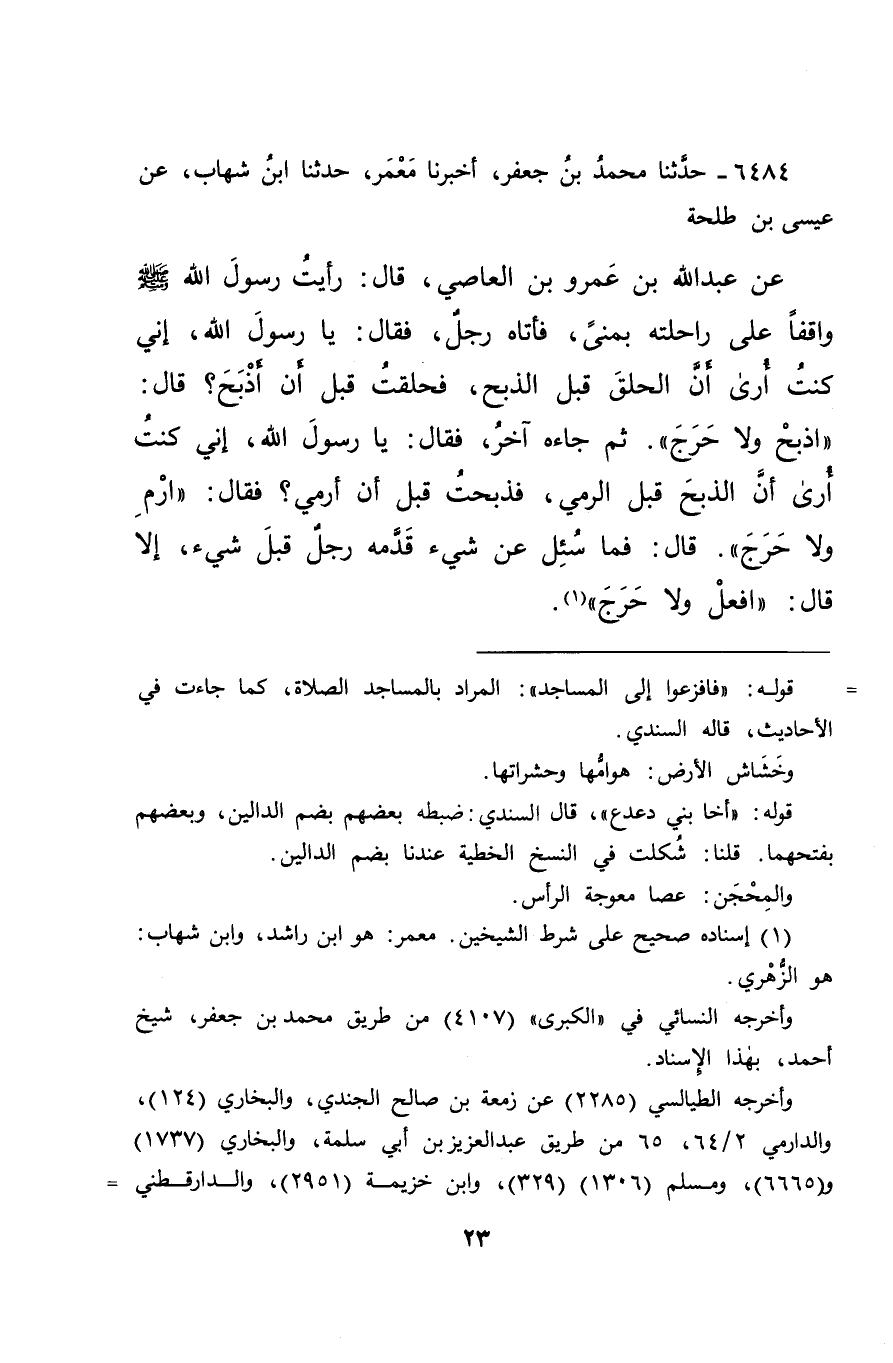 ٦٤٨٤ـ حدَّثنا محمدُ بنُ جعفر، أخبرنا مَعْمَر، حدثنا ابنُ شهاب، عن
عيسى بن طلحة
عن عبدالله بن عَمرو بن العاصي، قال: رأيتُ رسولَ الله ﷺ
واقفاً على راحلته بمنىً، فأتاه رجلٌ، فقال: يا رسولَ الله، إني
كنتُ أُرىٰ أَنَّ الحلقَ قبل الذبح، فحلقتُ قبل أَن أَذْبَحَ؟ قال:
«اذبحْ ولا حَرَجَ». ثم جاءه آخرُ، فقال: يا رسولَ الله، إني كنتُ
أُرىٰ أنَّ الذبحَ قبل الرمي، فذبحتُ قبل أن أرمي؟ فقال: «ارْمِ
ولا حَرَجَ». قال: فما سُئِل عن شيء قَدَّمه رجلٌ قبلَ شيء، إلا
قال: «افعلْ ولا حَرَجَ»(١).
= قولـه: «فافزعوا إلى المساجد»: المراد بالمساجد الصلاة، كما جاءت في
الأحاديث، قاله السندي.
وخَشَاش الأرض: هوامُّها وحشراتها.
قوله: «أخا بني دعدع»، قال السندي: ضبطه بعضهم بضم الدالين، وبعضهم
بفتحهما. قلنا: شُكلت في النسخ الخطية عندنا بضم الدالين.
والمِحْجَن: عصا معوجة الرأس.
(١) إسناده صحيح على شرط الشيخين. معمر: هو ابن راشد، وابن شهاب:
هو الزُّهْري.
وأخرجه النسائي في «الكبرى» (٤١٠٧) من طريق محمد بن جعفر، شيخ
أحمد، بهٰذا الإسناد.
وأخرجه الطيالسي (٢٢٨٥) عن زمعة بن صالح الجندي، والبخاري (١٢٤)،
والدارمي ٦٤/٢، ٦٥ من طريق عبدالعزيز بن أبي سلمة، والبخاري (١٧٣٧)
و(٦٦٦٥)، ومسلم (١٣٠٦) (٣٢٩)، وابن خزيمـة (٢٩٥١)، والـدارقـطني =
٢٣